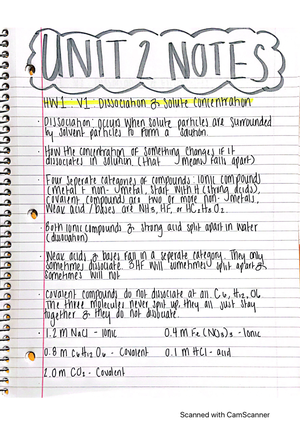 UNIT 2 NOTES
HW1: V1: Dissociation & Solute Concentration
· Dissociation: occurs when solute particles are surrounded
by solvent particles to form a solution.
· How the concentration of something changes if it
dissociates in solution. (that means falls apart)
· Four seperate categories of compounds: Ionic compounds
(metal + non-metal, start with H (strong acids),
covalent compounds are two or more non-metals,
Weak acid / bases are NH3, HF, or HC2H3O2.
· Both ionic compounds & strong acid split apart in water
(dissociation)
· Weak acids & bases fall in a seperate category. They only
sometimes dissociate. HF will sometimes split apart &
sometimes will not
· Covalent compounds do not dissociate at all. C6, H12, O6
The three molecules never split up, they all just stay
together & they do not dissociate.
· 1.2 m NaCl - Ionic 0.4 m Fe (NO3)3 - Ionic
0.8 m C6H12O6 - Covalent 0.1 m HCl - acid
2.0 m CO2 - Covalent
Scanned with CamScanner